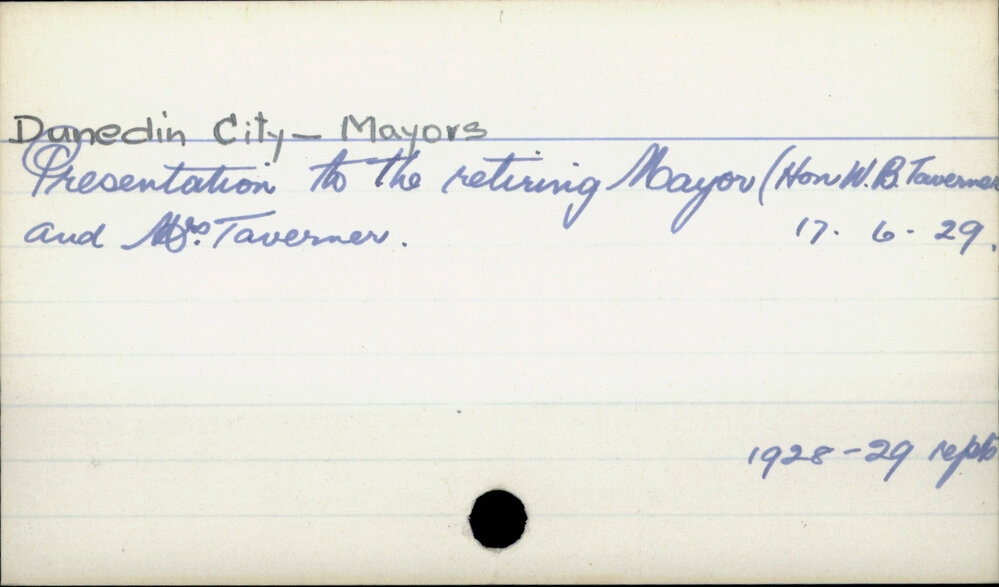 Dunedin City — Mayors
Presentation to the retiring Mayor (Hon W. B. Taverner
and Mrs. Taverner. 17. 6. 29.
1928-29 repts